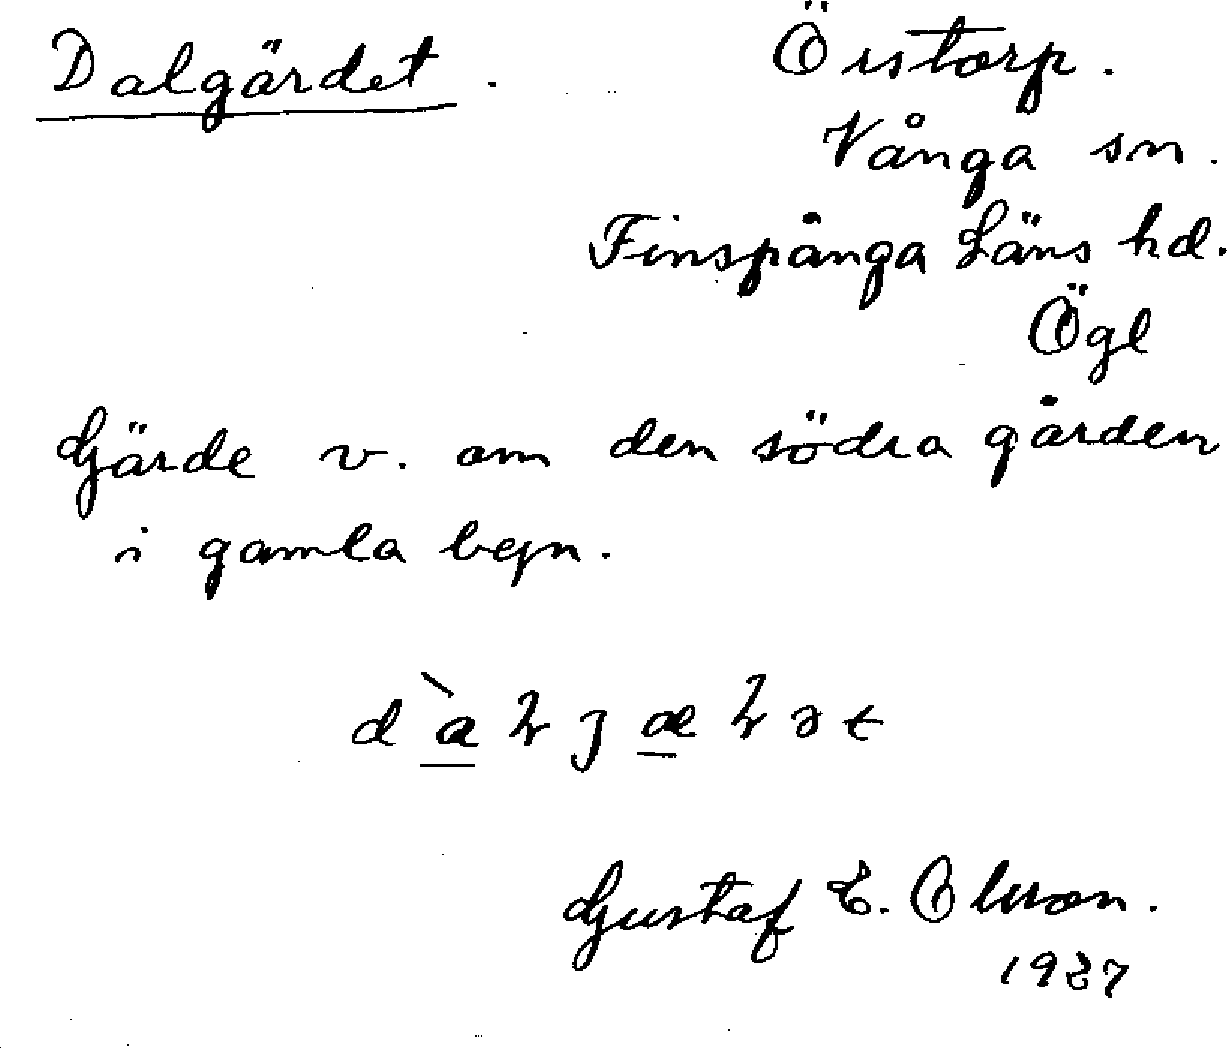 Dalgärdet. Öistorp.
Vånga sn.
Finspånga Läns hd.
Ögl
Gärde v. om den södra gården
i gamla begn.
Gustaf E. Olsson.
1937